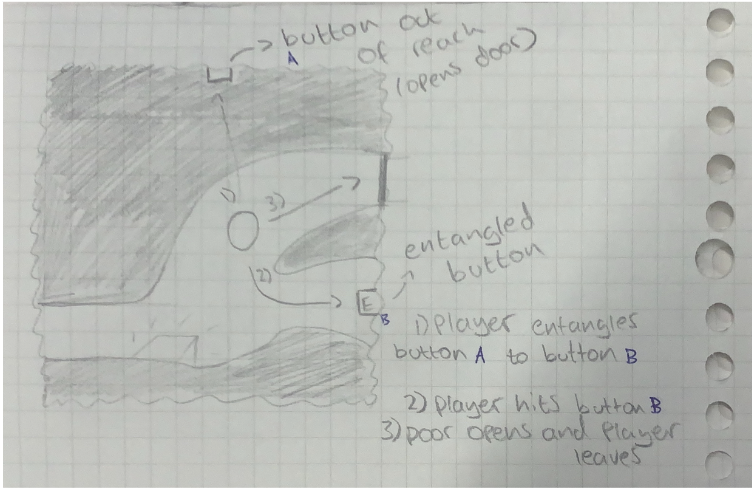 button out
of reach
(opens door)
A
1)
3)
2)
E
B
entangled
button
1) Player entangles
button A to button B
2) player hits button B
3) Door opens and Player
leaves